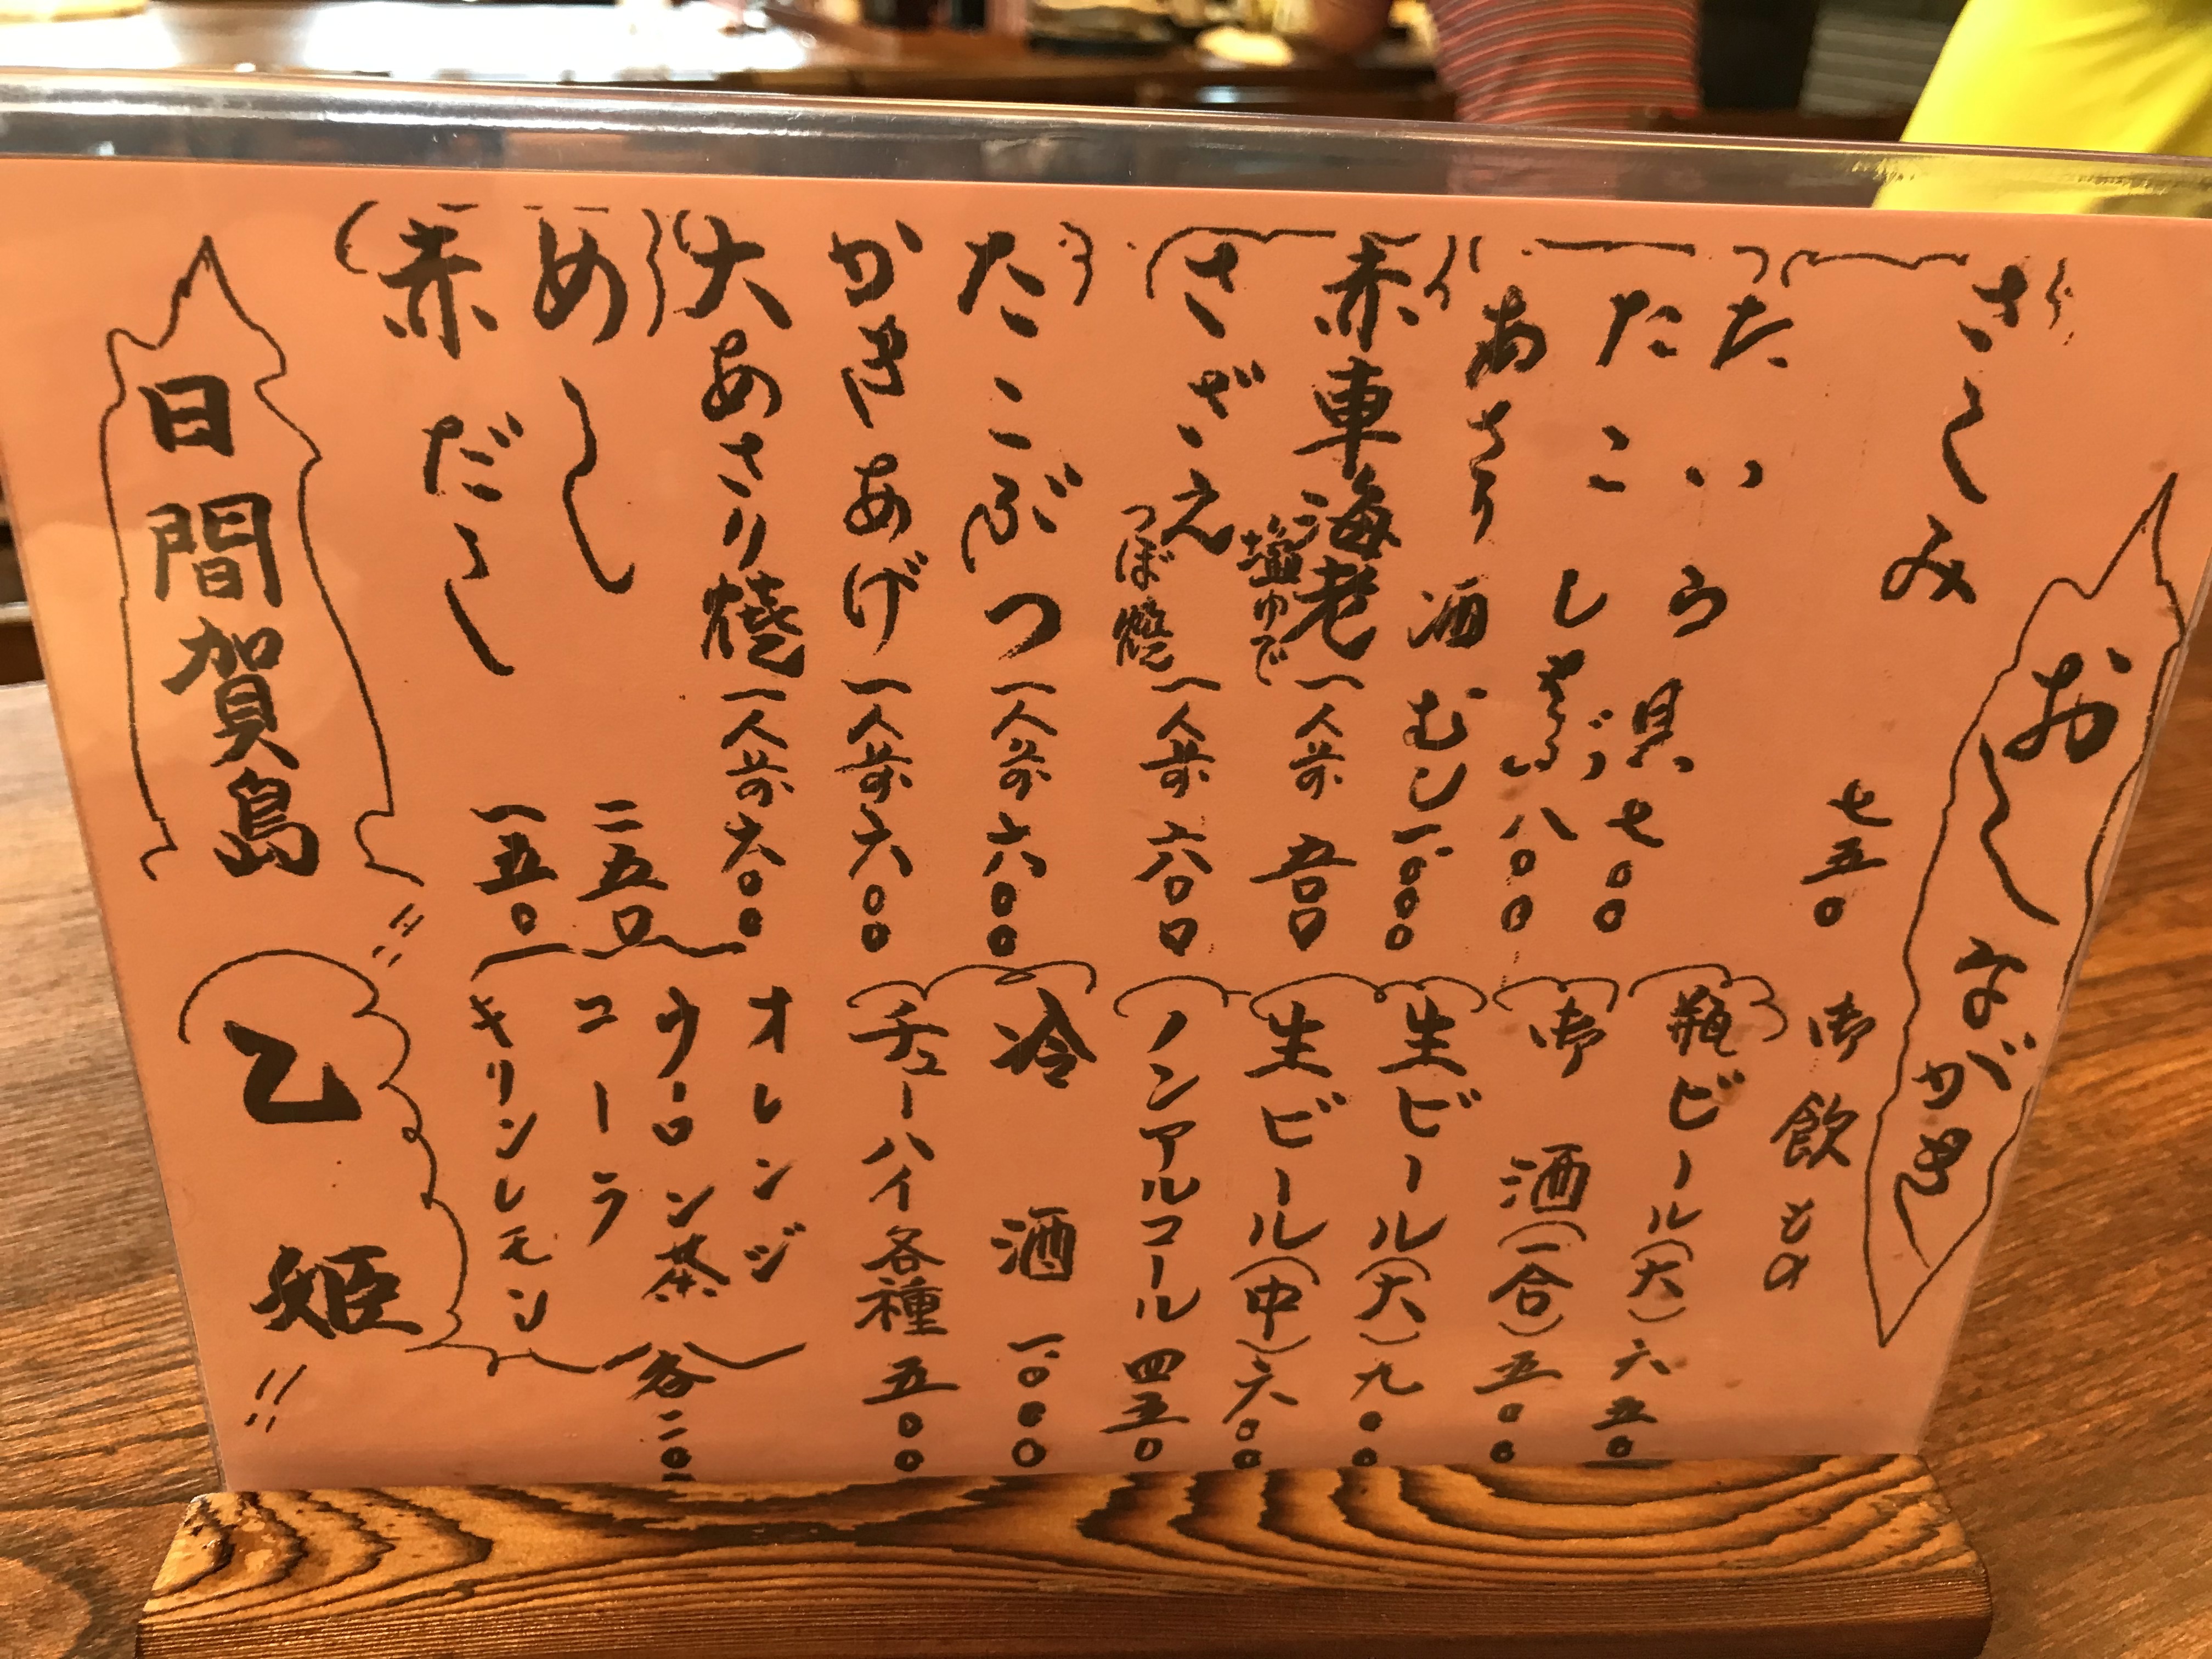 おしながき
さしみ 七五〇
たいら貝 七〇〇
たこしゃぶ 八〇〇
あさり酒むし 一、〇〇〇
赤車海老 塩ゆで 一人前 五〇〇
さざえ つぼ焼 一人前 六〇〇
たこぶつ 一人前 六〇〇
かきあげ 一人前 六〇〇
大あさり焼 一人前 六〇〇
めし 二五〇
赤だし 一五〇
御飲もの
瓶ビール(大) 六五〇
御酒(一合) 五〇〇
生ビール(大) 九〇〇
生ビール(中) 六〇〇
ノンアルコール 四五〇
冷酒 一、〇〇〇
チューハイ各種 五〇〇
オレンジ
ウーロン茶
コーラ
キリンレモン
各二〇〇
日間賀島
乙姫